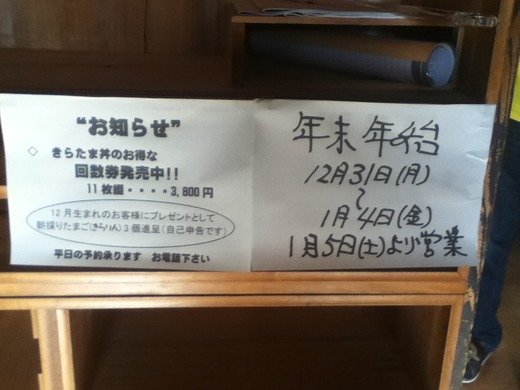 “お知らせ”
◇ きらたま丼のお得な
回数券発売中!!
11枚組・・・・3,800円
12月生まれのお客様にプレゼントとして
朝採りたまご(きらりん)3個進呈(自己申告です)
平日の予約承ります お電話下さい
年末年始
12月31日(月)
~
1月4日(金)
1月5日(土)より営業